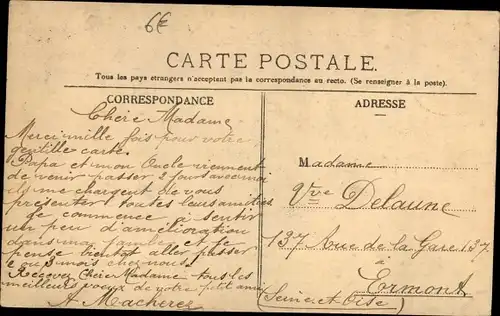 6€
CARTE POSTALE.
Tous les pays étrangers n'acceptent pas la correspondance au recto. (Se renseigner à la poste).
CORRESPONDANCE
Chère Madame
Merci mille fois pour votre
gentille carte.
Papa et mon Oncle viennent
de venir passer 2 jours avec moi
ils me chargent de vous
présenter toutes leurs amitiés
Je commence à sentir
un peu d'amélioration
dans ma jambe et je
pense bientôt aller passer
2 ou 3 mois chez nous.
Recevez Chère Madame tous les
meilleurs voeux de votre petit ami
A. Macherez
ADRESSE
Madame
Vve Delaune
137 Rue de la Gare 137
à
Ermont
(Seine et Oise)